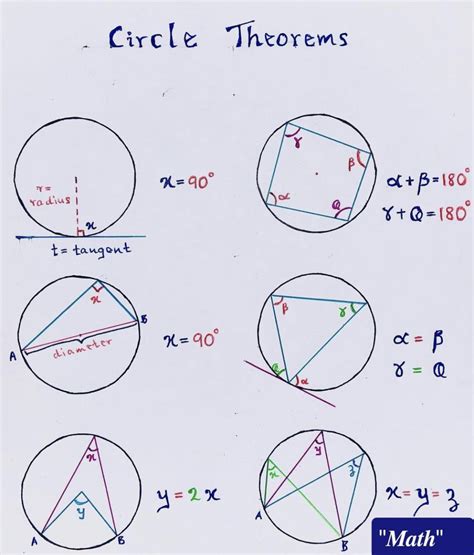 Circle Theorems
r=
radius
x
t= tangent
x = 90°
γ
β
α
Q
α+β=180°
γ+Q=180°
x
A
B
diameter
x = 90°
β
γ
Q
α
α = β
γ = Q
x
y
A
B
y = 2x
x
y
z
A
B
x = y = z
"Math"